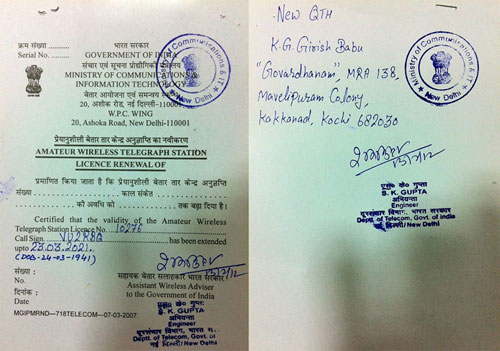 क्रम संख्या
भारत सरकार
Serial No.
GOVERNMENT OF INDIA
संचार एवं सूचना प्रौद्योगिकी मंत्रालय
MINISTRY OF COMMUNICATIONS &
INFORMATION TECHNOLOGY
बेतार आयोजना एवं समन्वय
20, अशोक रोड, नई दिल्ली-110001
W.P.C. WING
20, Ashoka Road, New Delhi-110001
प्रेयानुशीली बेतार तार केन्द्र अनुज्ञप्ति का नवीकरण
AMATEUR WIRELESS TELEGRAPH STATION
LICENCE RENEWAL OF
प्रमाणित किया जाता है कि प्रेयानुशीली बेतार तार केन्द्र अनुज्ञप्ति
संख्या काल संकेत
की अवधि को तक बढ़ा दिया है।
Certified that the validity of the Amateur Wireless
Telegraph Station Licence No. 10276
Call Sign VU2RBQ has been extended
upto 23.03.2021.
(DOB-24-03-1941)
संख्या :
No.
दिनांक :
Date
सहायक बेतार सलाहकार भारत सरकार
Assistant Wireless Adviser
to the Government of India
MGIPMRND—718TELECOM—07-03-2007.
एस० के० गुप्ता
S. K. GUPTA
अभियन्ता
Engineer
दूरसंचार विभाग, भारत
Deptt. of Telecom, Govt. of
नई दिल्ली/New Delhi
Ministry of Communications & IT
New Delhi
New QTH
K.G. Girish Babu
"Govardhanam", MRA 138,
Mavelipuram Colony,
Kakkanad, Kochi 682030
Ministry of Communications & IT
New Delhi
एस० के० गुप्ता
S. K. GUPTA
अभियन्ता
Engineer
दूरसंचार विभाग, भारत सरकार
Deptt. of Telecom, Govt. of India
नई दिल्ली/New Delhi